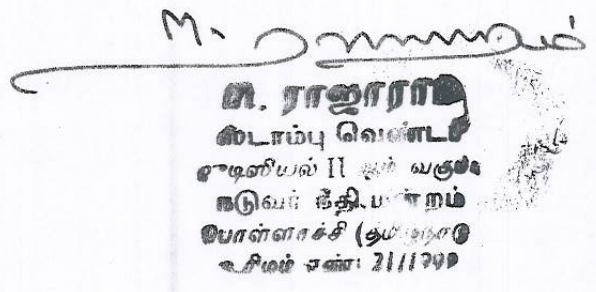 M. ராஜாராம்
ம. ராஜாராம்
ஸ்டாம்பு வெண்டர்
ஜுடிஷியல் II ஆம் வகுப்பு
நடுவர் நீதிமன்றம்
பொள்ளாச்சி (தமிழ்நாடு
உரிமம் எண்: 21/1999